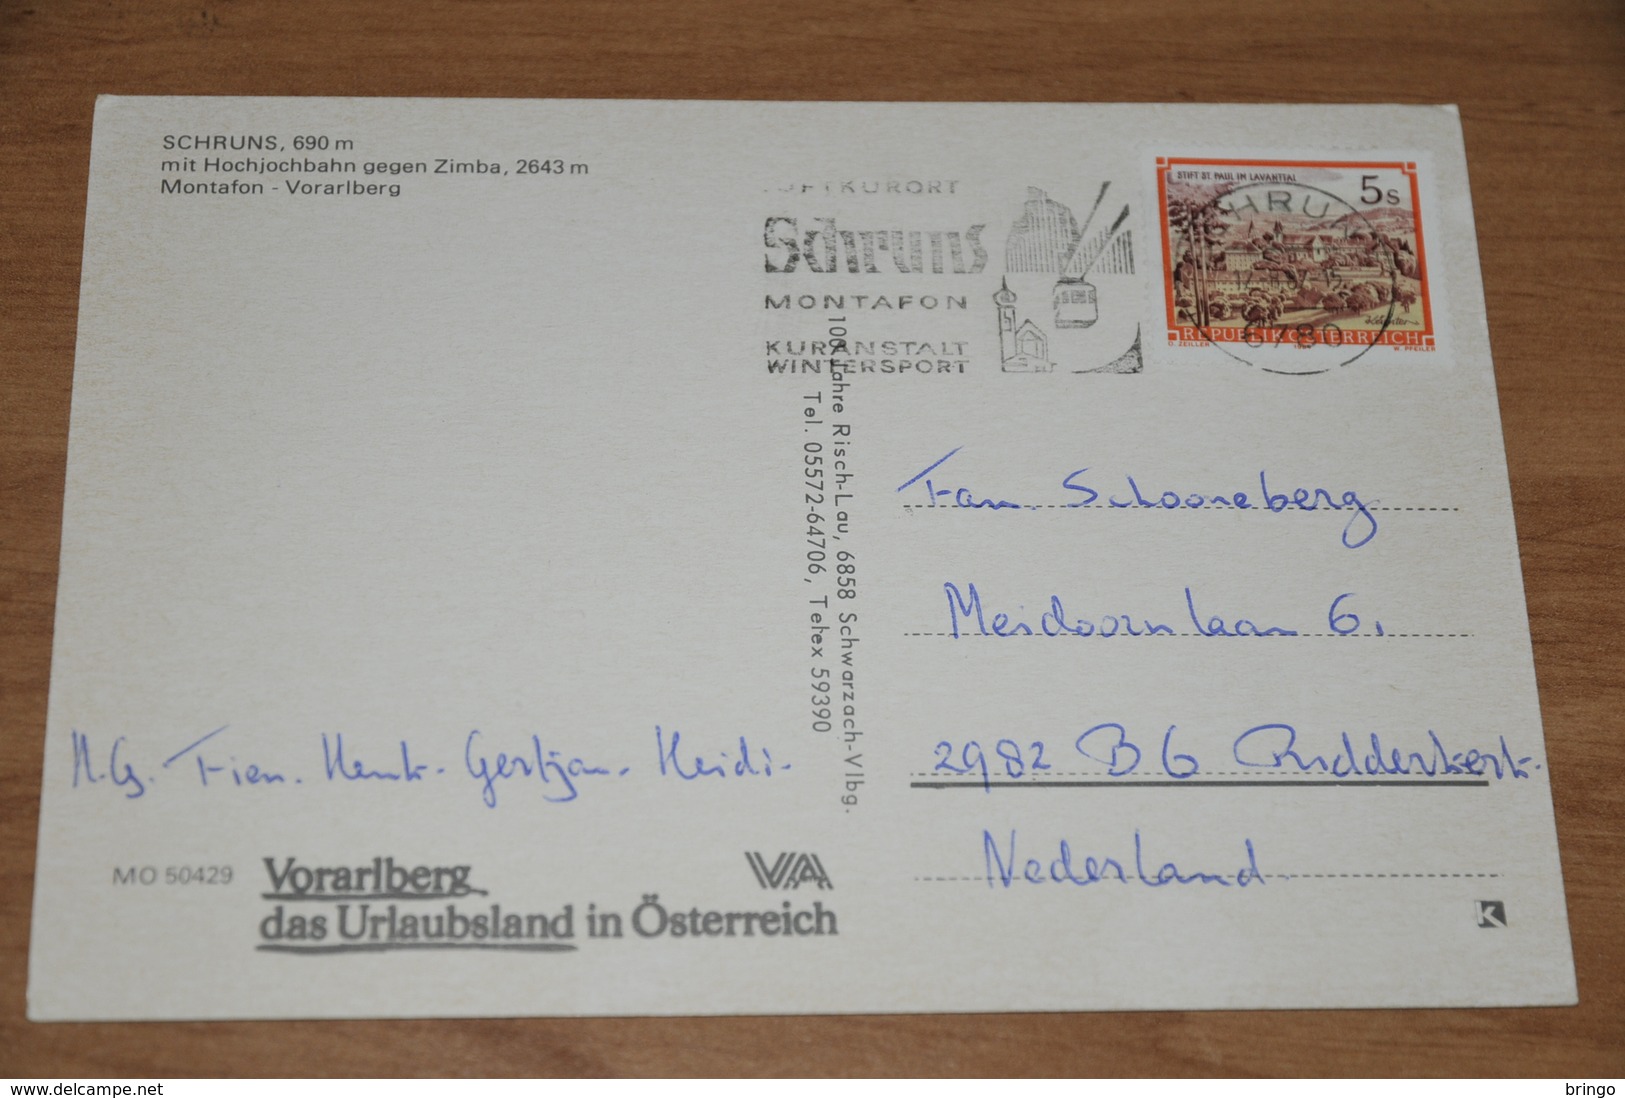 SCHRUNS, 690 m
mit Hochjochbahn gegen Zimba, 2643 m
Montafon - Vorarlberg
LUFTKURORT
Schruns
MONTAFON
KURANSTALT
WINTERSPORT
STIFT ST. PAUL IM LAVANTTAL
5s
SCHRUNS
6780
REPUBLIK ÖSTERREICH
O. ZEILLER
W. PFEILER
100 Jahre Risch-Lau, 6858 Schwarzach-Vlbg.
Tel. 05572-64706, Telex 59390
Fam. Schooneberg
Meidoornlaan 6.
2982 BG Ridderkerk.
Nederland.
H.G. Fien. Henk. Gertjan. Heidi.
MO 50429
Vorarlberg
das Urlaubsland in Österreich
VA
K
delcampe.net
bringo